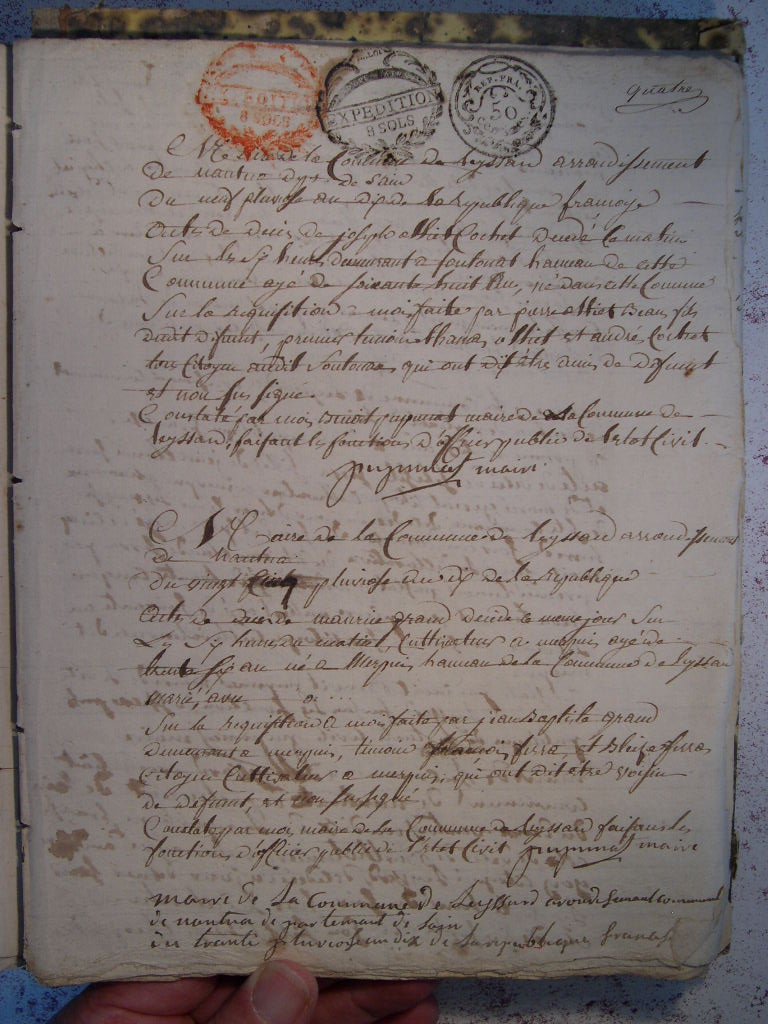 EXPEDITION
8 SOLS
EXPEDITION
8 SOLS
REP. FRA.
50
quatre
Mairie de la Commune de Leyssard arrondissement
de nantua dept. de lain
Du neuf pluviose an dix de la Republique françoise
Acte de deces de joseph alliet Cochet decedé le matin
Sur les six heures demeurant a soulonat hameau de cette
Commune agé de soixante huit ans, né dans cette Commune
Sur la requisition a moi faite par pierre alliet fils
dudit defunt, premier temoin thomas alliet et andré Cochet
tous Citoyens audit qui ont dit être amis de defunt
et non sus signé
Constaté par moi Benoit maire de La Commune de
Leyssard, faisant les fonctions d'officier public de l'etat Civil
maire
Mairie de la Commune de Leyssard arrondissement
de nantua
Du vingt Cinq pluviose an dix de la Republique
Acte de deces de maurice grand decede le meme jour Sur
Les Six heures du matin, Cultivateur a merpuis agé de
trente Six ans né a Merpuis hameau de la Commune de Leyssard
marié, avec
Sur la requisition a moi faite par jean Baptiste grand
demeurant a merpuis, temoin et
Citoyens Cultivateurs a merpuis, qui ont dit etre voisin
de defunt, et non sus signé
Constaté par moi, maire de La Commune de Leyssard faisant les
fonctions d'officier public de l'etat Civil maire
mairie de La Commune de Leyssard arondisement communal
de nantua departement de lain
du trante pluviose an dix de la republique fransaise